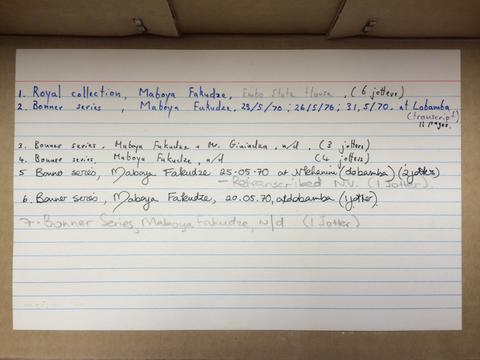 1. Royal collection, Maboya Fakudze, Embo State House, (6 jotters)
2. Bonner series, Maboya Fakudze, 23/5/70; 26/5/70; 31/5/70. at Lobamba
(transcript)
11 pages.
3. Bonner series, Maboya Fakudze + Mr. n/d. (3 jotters)
4. Bonner series, Maboya Fakudze, n/d (4 jotters)
5 Bonner series, Maboya Fakudze 25.05.70 at (Lobamba) (2 jotters)
- Retranscribed N.V. (1 Jotter)
6. Bonner series, Maboya Fakudze, 20.05.70, at Lobamba (1 jotter)
7. Bonner Series, Maboya Fakudze, n/d (1 Jotter)